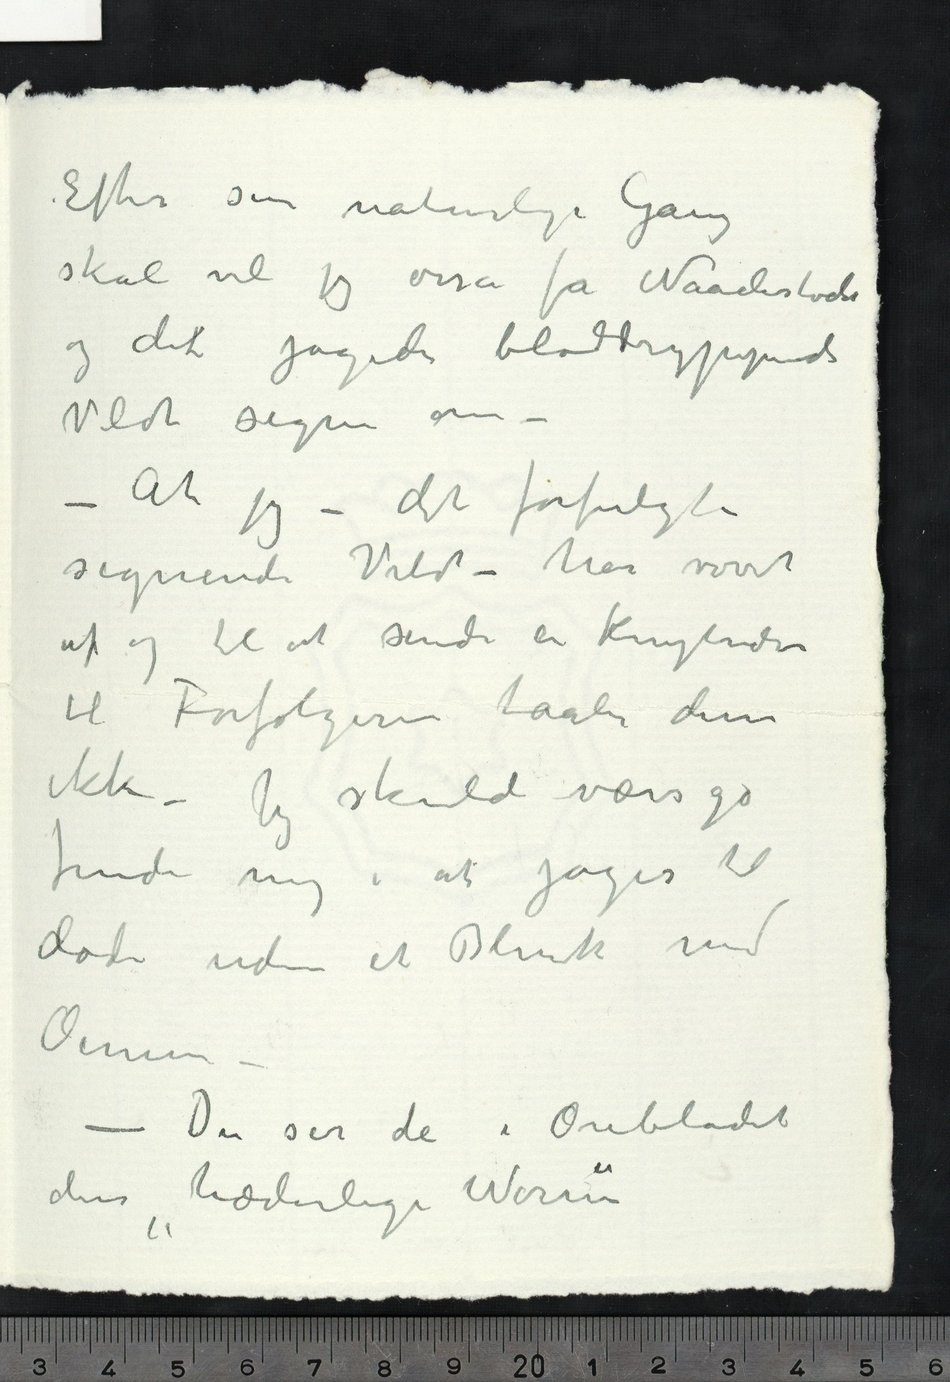 Efter sin naturlige Gang
skal vel jeg ossa få Naadestødet
og det jagede bloddryppende
Vildt segne om –
– At jeg – det forfulgte
segnende Vildt – har vovet
af og til at sende en Knyttnæve
til Forfølgeren taaler den
ikke – Jeg skulde værsgo
finde mig i at jages til
døde uden et Blink med
Øinene –
— Du ser de i Ørebladet
den „hæderlige Worm"
3 4 5 6 7 8 9 20 1 2 3 4 5 6